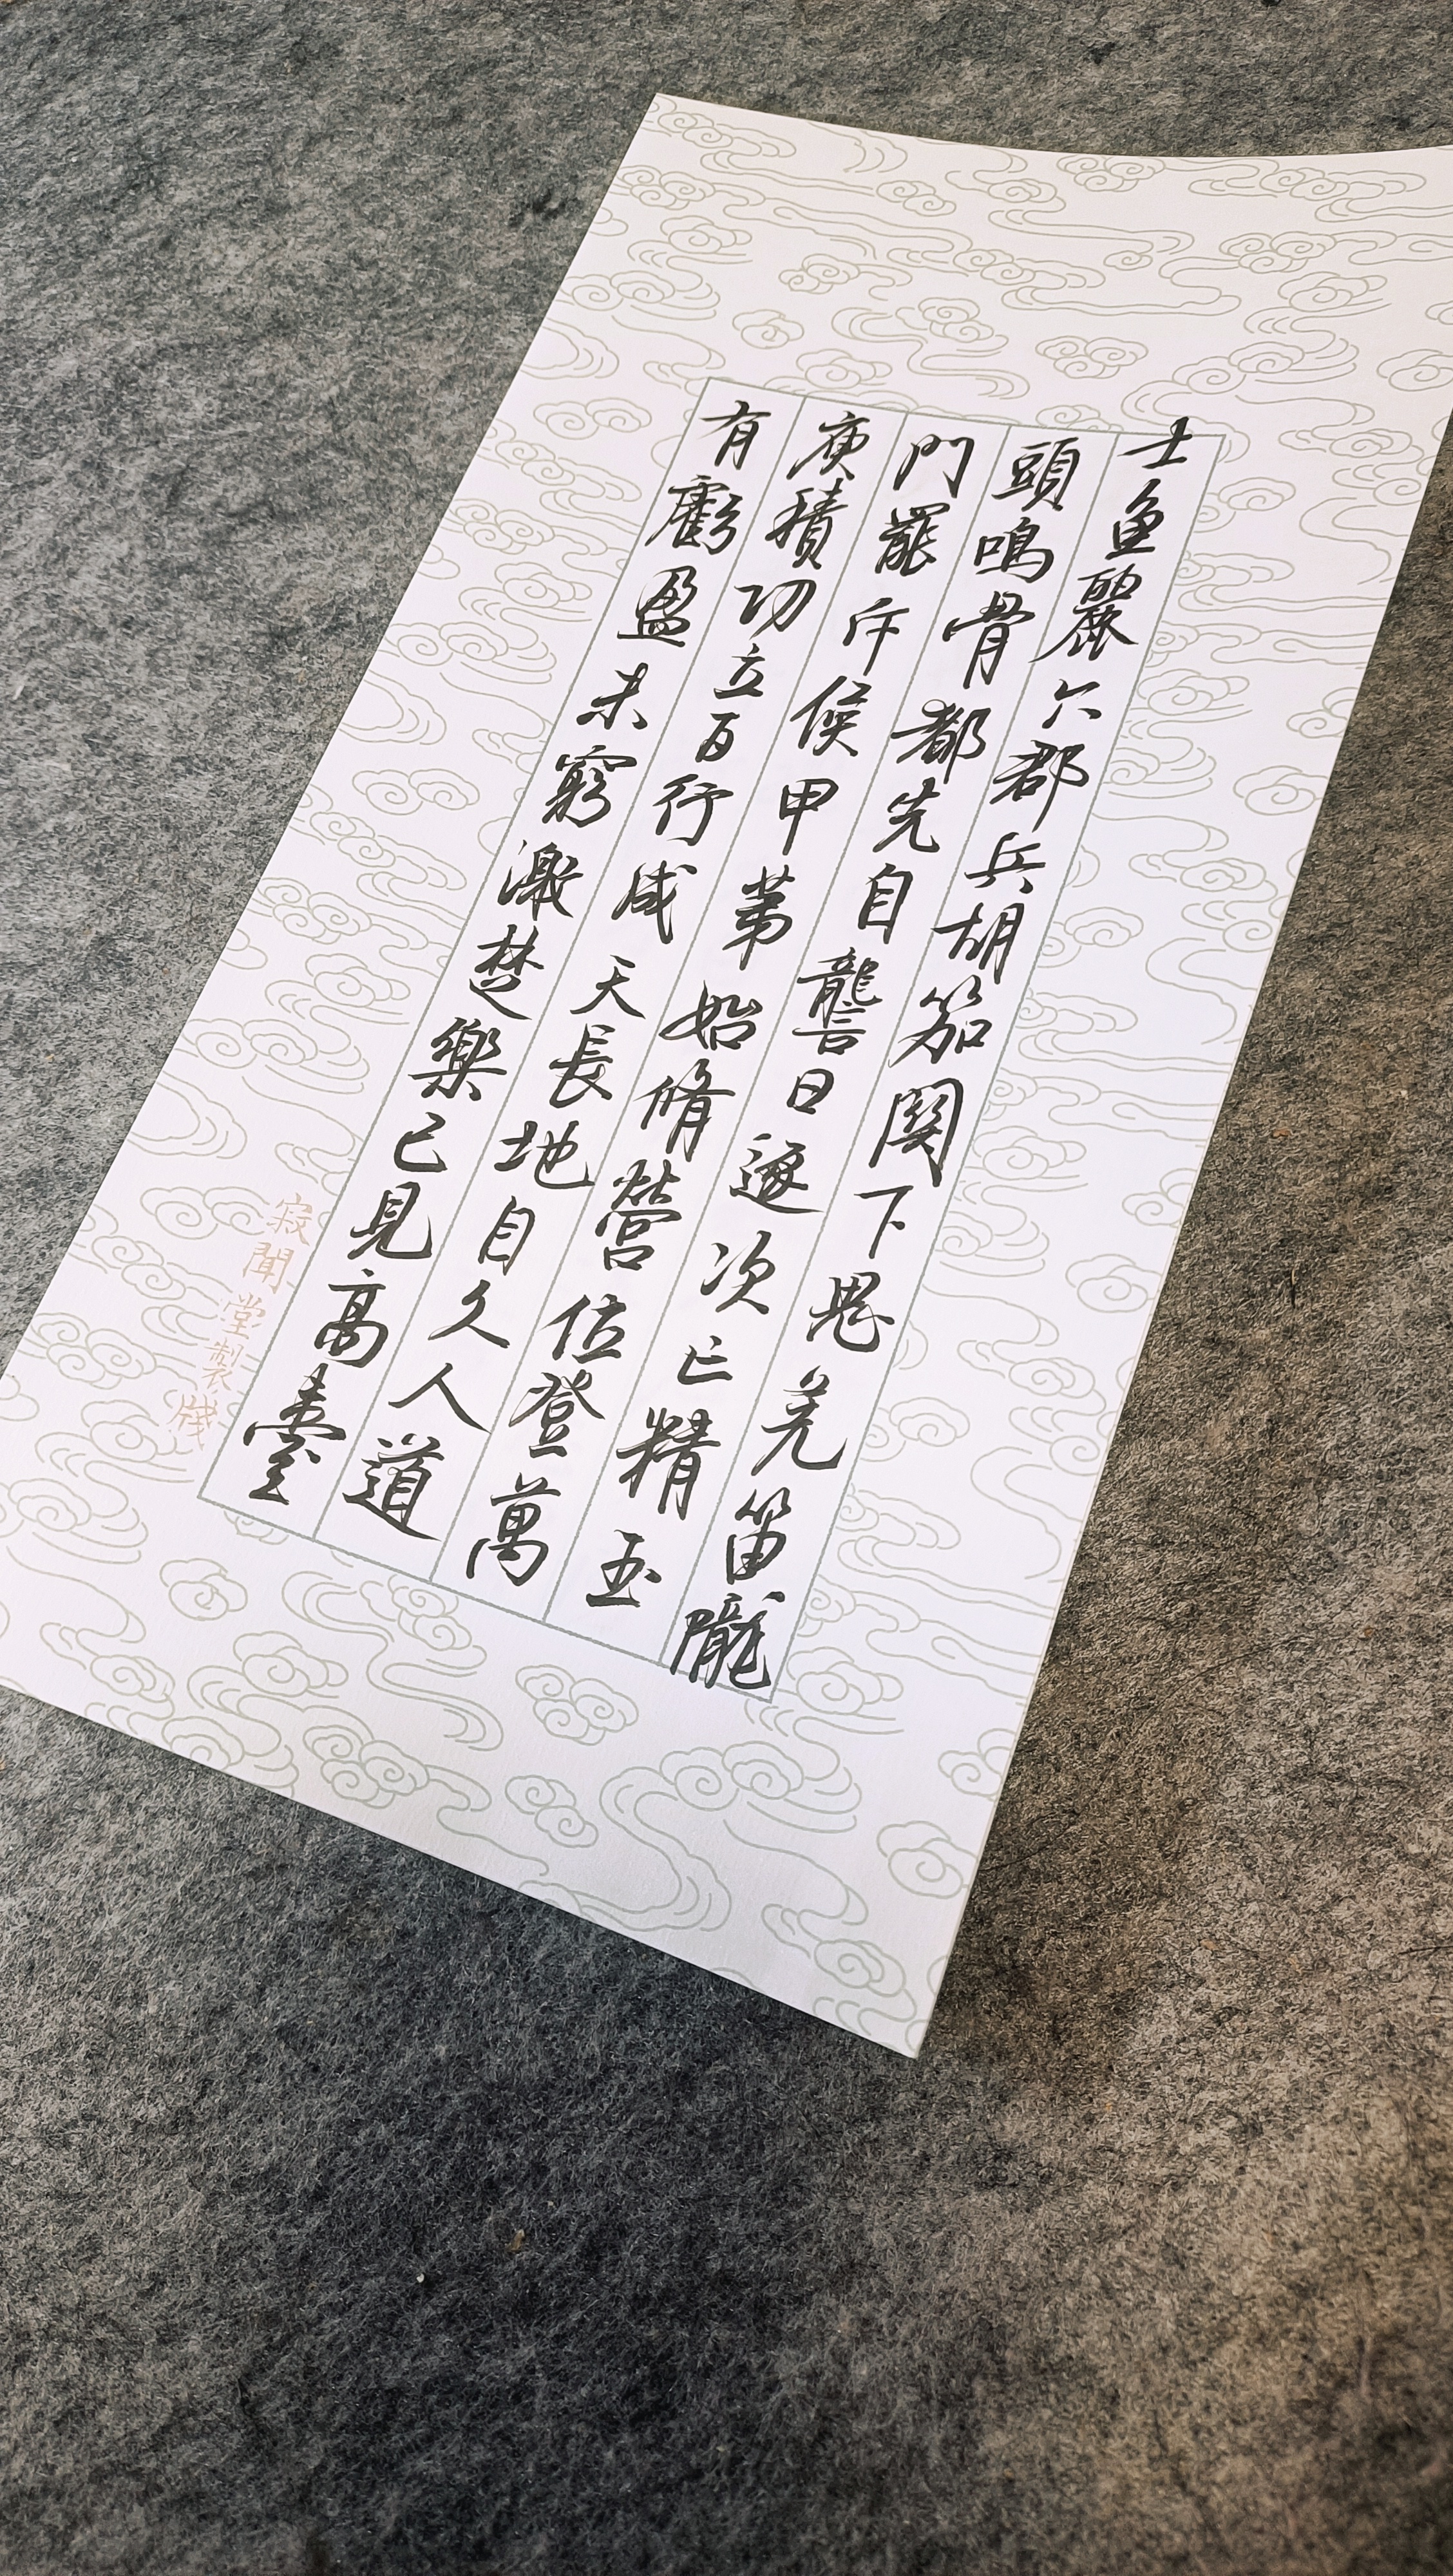 士魚麗六郡兵胡笳關下思羌笛隴
頭鳴骨都先自讋日逐次亡精玉
門罷斥候甲第始脩營位登萬
庾積功立百行成天長地自久人道
有虧盈未窮激楚樂已見高臺
寂聞堂製牋